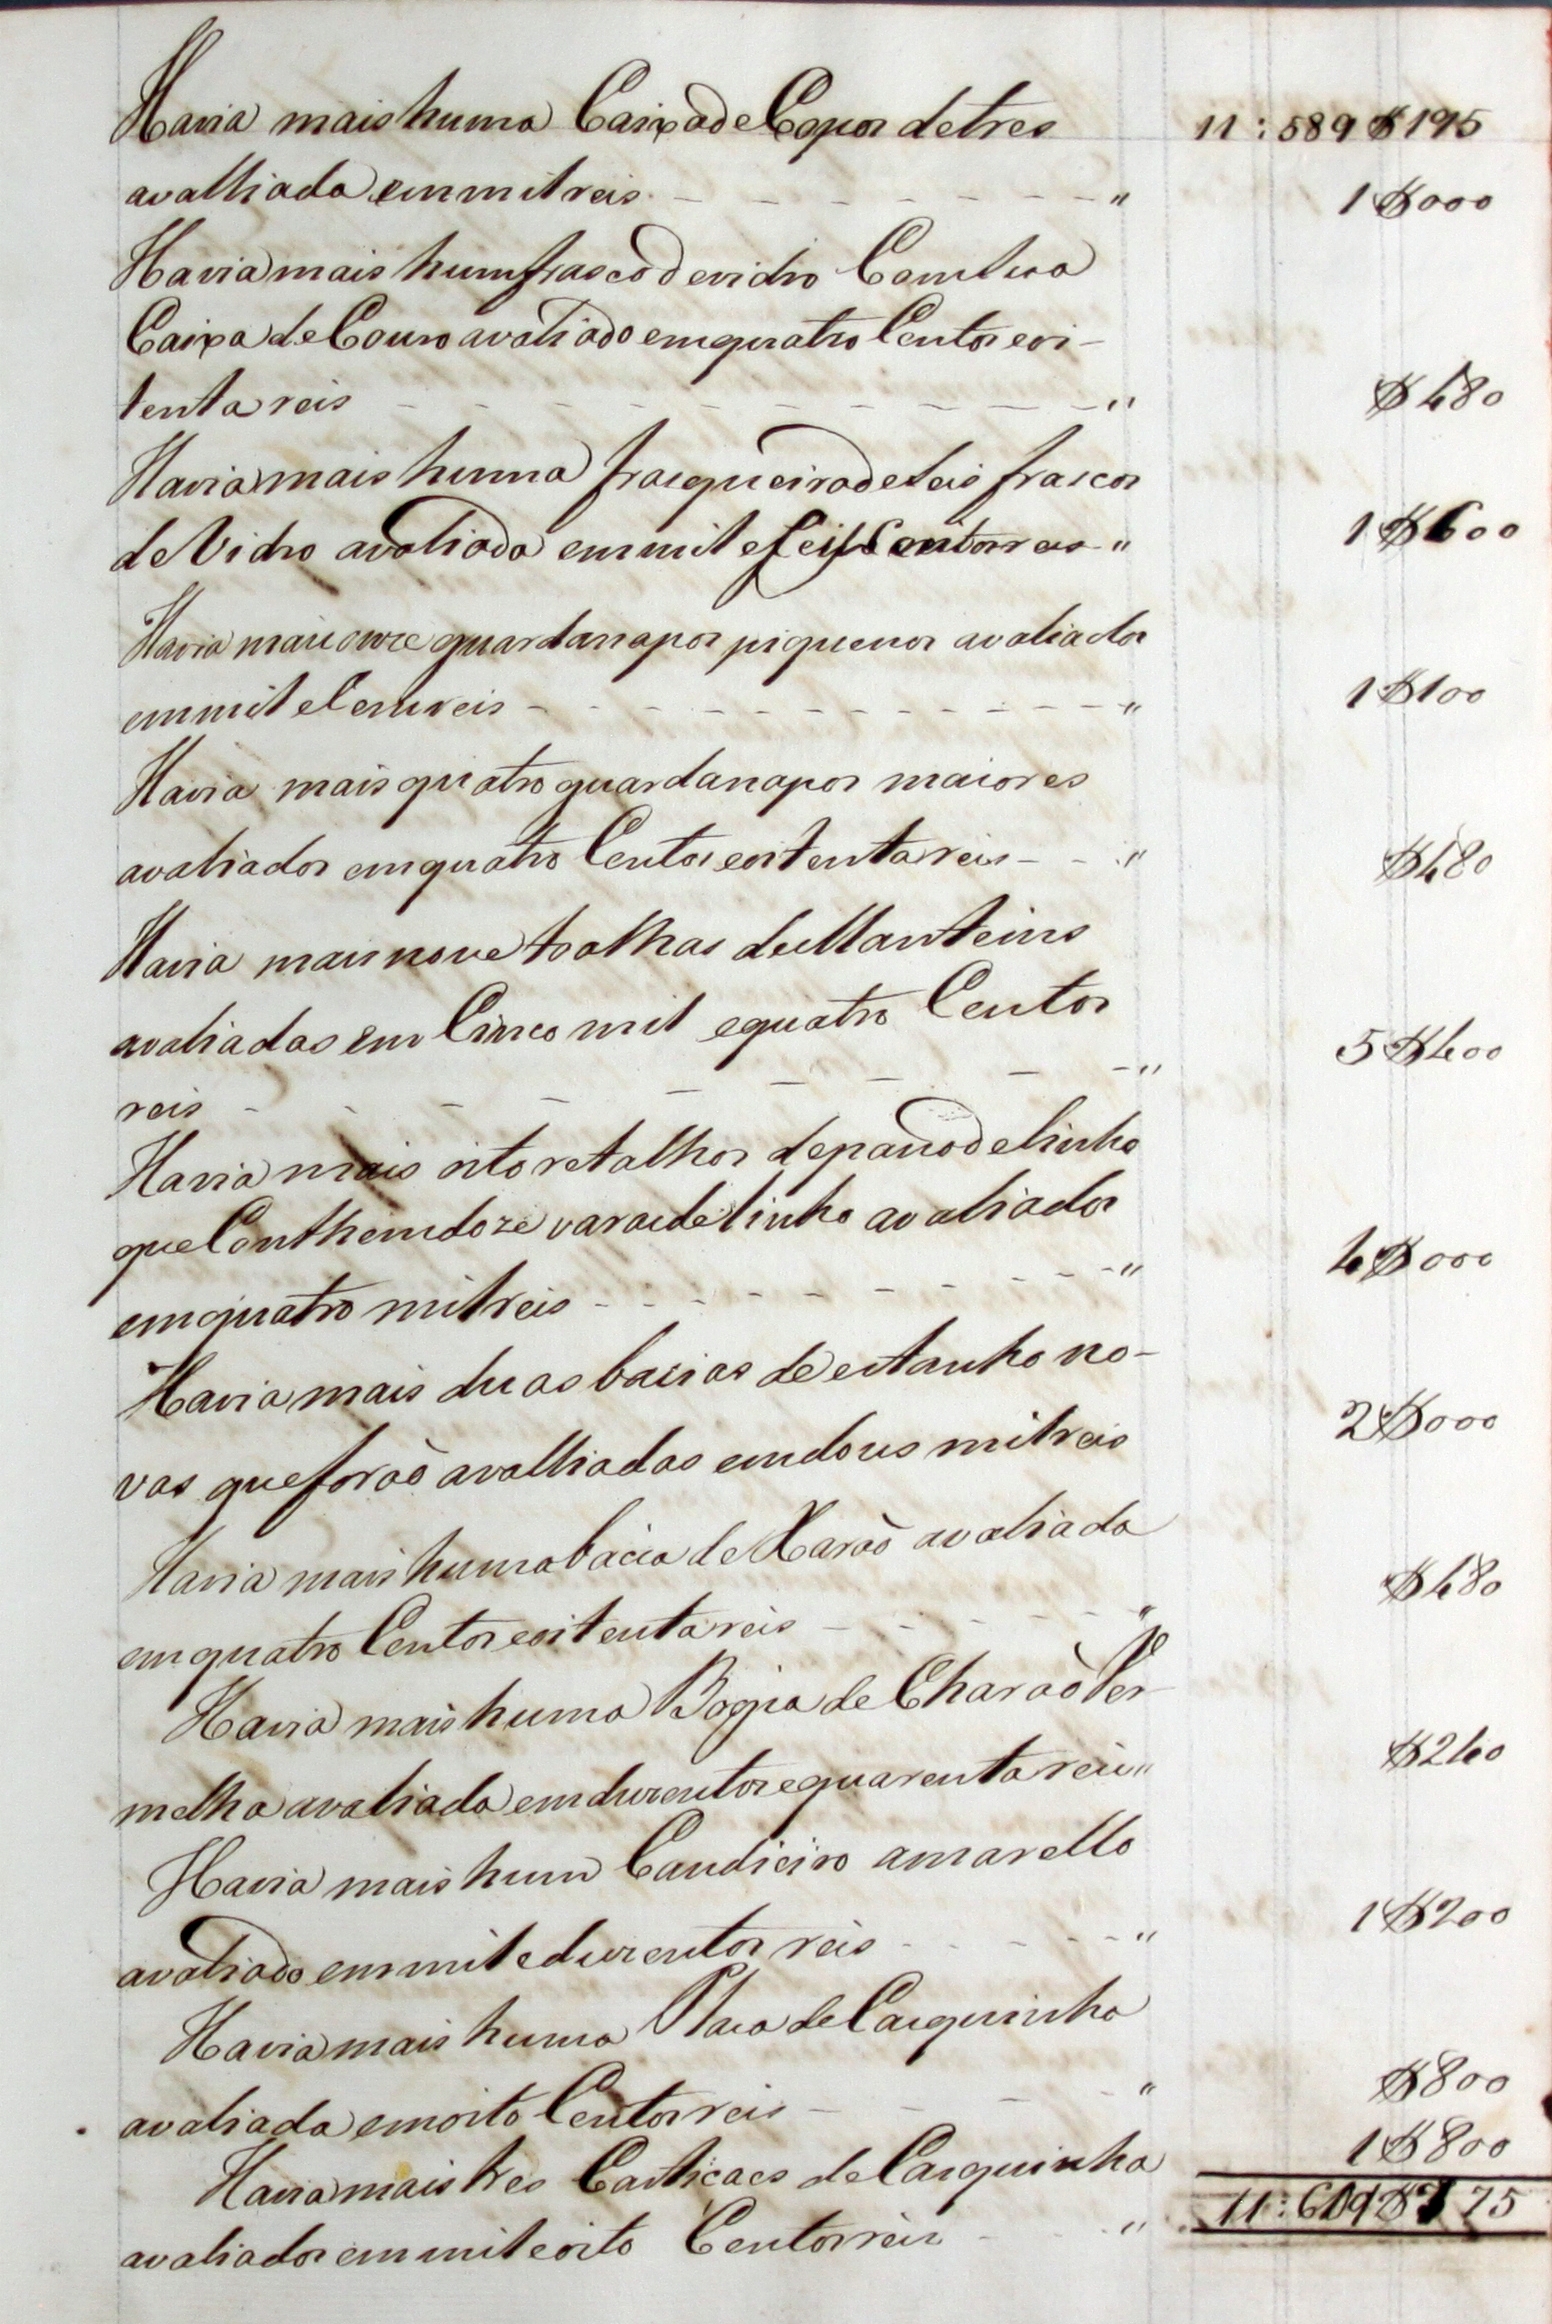 Havia mais huma Caixa de Copos de tres 11:589$195
avalliada em mil reis " 1$000
Havia mais hum frasco de vidro Com sua
Caixa de Couro avaliado em quatro Centos e oi-
tenta reis " $480
Havia mais huma frasqueira de seis frascos
de Vidro avaliada em mil e seis Centos reis " 1$600
Havia mais onze guardanapos piquenos avaliados
em mil e Cem reis " 1$100
Havia mais quatro guardanapos maiores
avaliados em quatro Centos e oitenta reis " $480
Havia mais nove toalhas de Manteins
avaliadas em Cinco mil e quatro Centos 5$400
reis "
Havia mais oito retalhos de pano de linho
que Conthem doze varas de linho avaliados
em quatro mil reis " 4$000
Havia mais duas bacias de estanho no-
vas que foraõ avalliadas em dous mil reis 2$000
Havia mais huma bacia de Xaraõ avaliada
em quatro Centos e oitenta reis " $480
Havia mais huma Bogia de Charaõ Ver-
melha avaliada em duzentos e quarenta reis " $240
Havia mais hum Candieiro amarello
avaliado em mil e duzentos reis " 1$200
Havia mais huma de Casquinha
avaliada em oito Centos reis " $800
Havia mais tres Castiçaes de Casquinha 1$800
avaliados em mil e oito Centos reis " 11:609$775